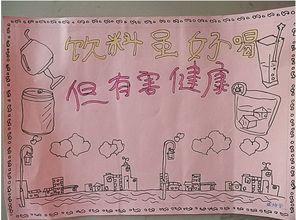 饮料虽好喝
但有害健康